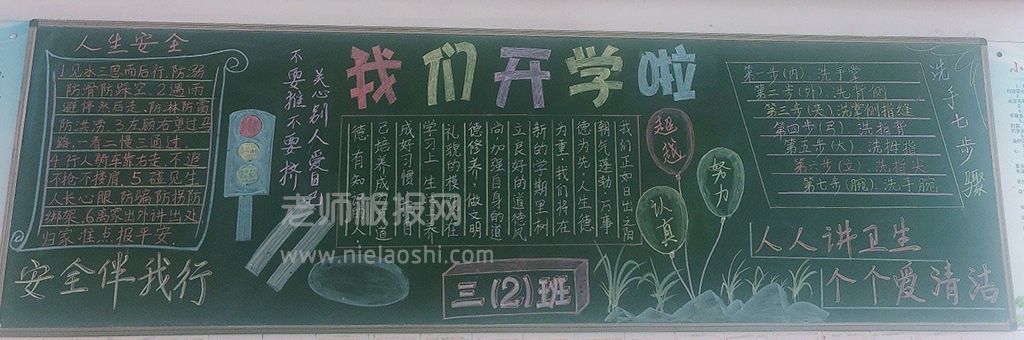 人生安全
1.见水三思而后行.防溺
防骨防踩空.2遇雨
避停然后走.防淋防雷
防洪涝.3.左顾右望过马
路.一看二慢三通过.
4.行人骑车靠右走.不追
不抢不搂肩.5.碰见生
人长心眼.防骗防拐防
绑架.6.离家出外讲出处
归家准点报平安.
安全伴我行
不要推不要挤
关怀别人受
我们开学啦
我们正如日出之阳
朝气蓬勃,万事
德为先,人生德
为重,我们将在
新的学期里树
立良好的道德风
尚加强自身的道
德修养,做文明
礼貌的模范在
学习上,生
成好习惯
已培养成
德,有知
三(2)班
超越
努力
认真
洗手七步骤
第一步(内).洗手掌
第二步(外).洗背侧
第三步(夹).洗掌侧指缝
第四步(弓).洗指背
第五步(大).洗拇指
第六步(立).洗指尖
第七步(腕).洗手腕
人人讲卫生
个个爱清洁
老师板报网
www.nielaoshi.com